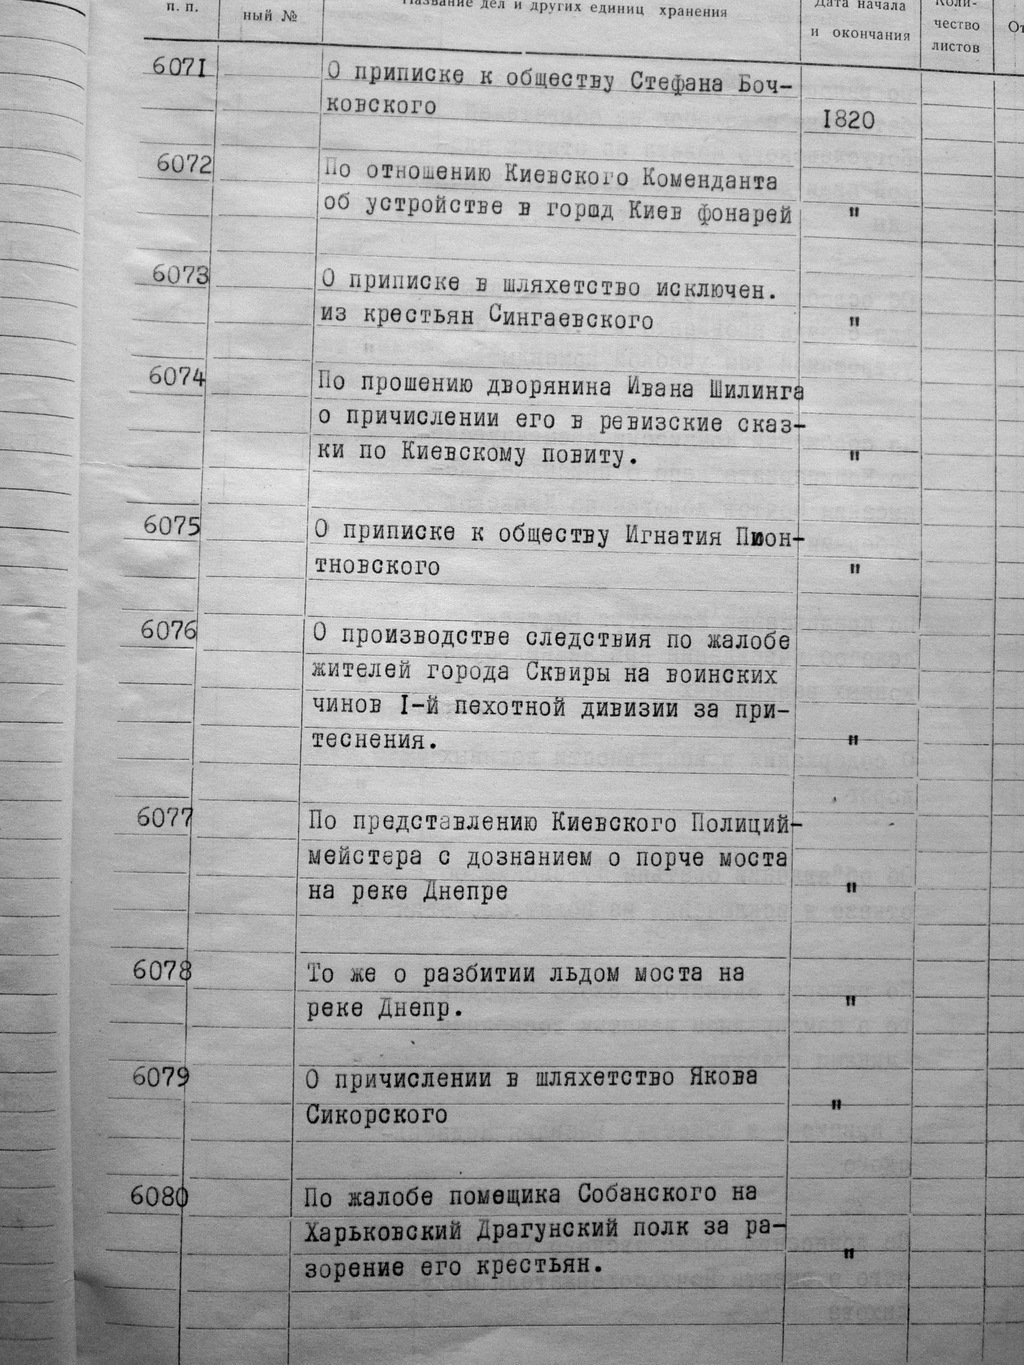 п. п.
ный №
Название дел и других единиц хранения
Дата начала
и окончания
Коли-
чество
листов
6071
О приписке к обществу Стефана Боч-
ковского
1820
6072
По отношению Киевского Коменданта
об устройстве в город Киев фонарей
"
6073
О приписке в шляхетство исключен.
из крестьян Сингаевского
"
6074
По прошению дворянина Ивана Шилинга
о причислении его в ревизские сказ-
ки по Киевскому повиту.
"
6075
О приписке к обществу Игнатия Пион-
тновского
"
6076
О производстве следствия по жалобе
жителей города Сквиры на воинских
чинов I-й пехотной дивизии за при-
теснения.
"
6077
По представлению Киевского Полиций-
мейстера с дознанием о порче моста
на реке Днепре
"
6078
То же о разбитии льдом моста на
реке Днепр.
"
6079
О причислении в шляхетство Якова
Сикорского
"
6080
По жалобе помещика Собанского на
Харьковский Драгунский полк за ра-
зорение его крестьян.
"